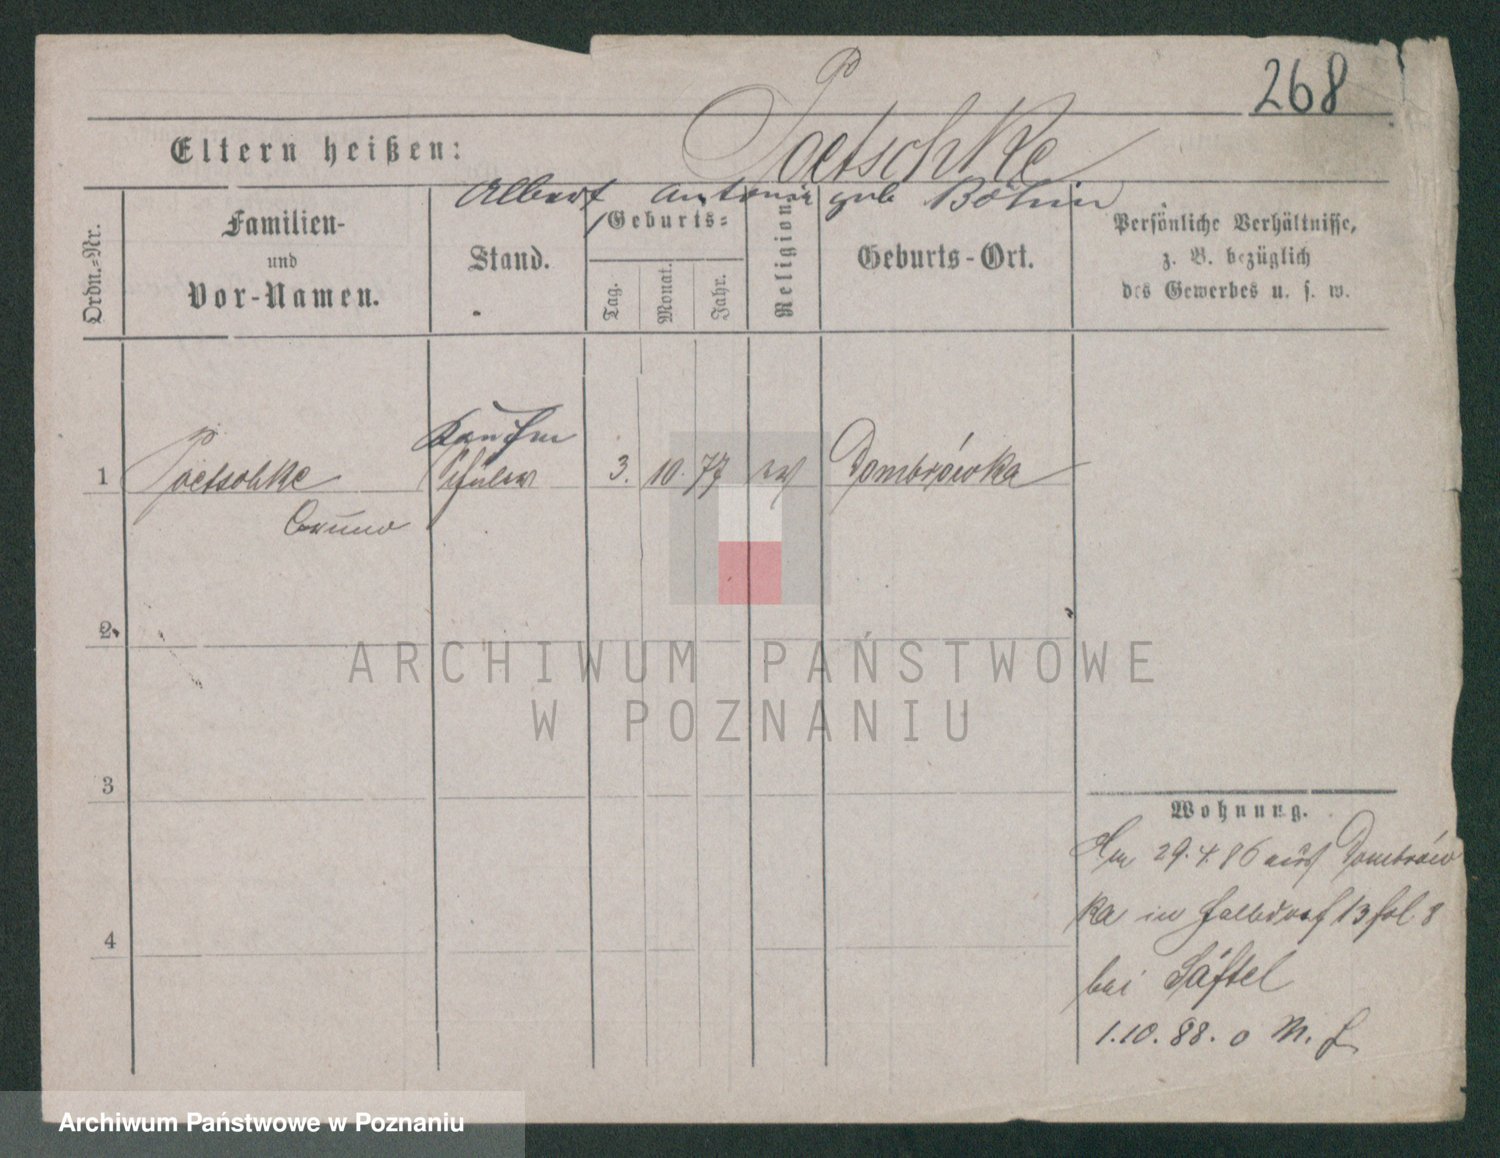 268
Poetschke
Eltern heißen:
Albert Antonie geb Böhm
Ordn.-Nr.
Familien-
und
Vor-Namen.
Stand.
Geburts-
Tag.
Monat.
Jahr.
Religion.
Geburts-Ort.
Persönliche Verhältnisse,
z. B. bezüglich
des Gewerbes u. s. w.
Kaufm
1 Poetschke Schüler 3. 10. 77 ev Dombrówka
Bruno
2
3
4
Wohnung.
Am 29.4.86 aus Dombrów
ka in 13 fol. 8
bei Säftel
1.10.88. o
ARCHIWUM PAŃSTWOWE
W POZNANIU
Archiwum Państwowe w Poznaniu